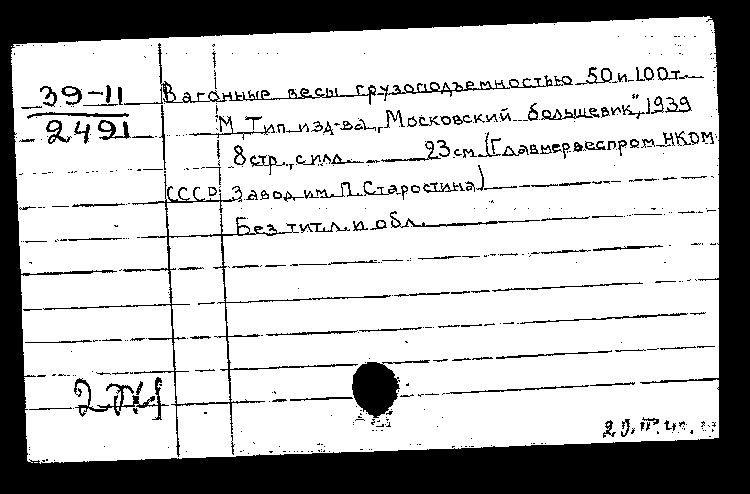 39-11
2491
Вагонные весы грузоподъемностью 50 и 100 т.
М, Тип. изд-ва „Московский большевик", 1939
8 стр., с илл. 23 см. (Главмервеспром НКОМ
СССР Завод им. П. Старостина)
Без тит. л. и обл.